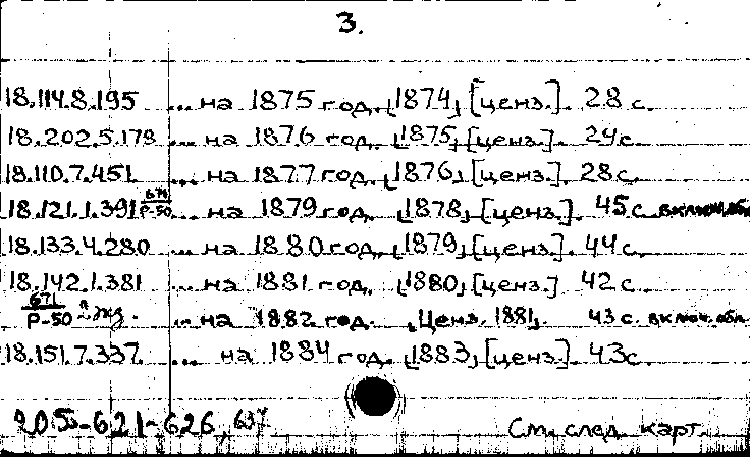 3.
18.114.8.195 ... на 1875 год. ⌊1874⌋ [ценз.]. 28 с.
18.202.5.178 ... на 1876 год. ⌊1875⌋ [ценз.]. 24 с.
18.110.7.451 ... на 1877 год. ⌊1876⌋ [ценз.]. 28 с.
18.121.1.391 671/Р-50 ... на 1879 год. ⌊1878⌋ [ценз.]. 45 с. включ. обл.
18.133.4.280 ... на 1880 год. ⌊1879⌋ [ценз.]. 44 с.
18.142.1.381 ... на 1881 год. ⌊1880⌋ [ценз.]. 42 с.
671/Р-50 2 экз. ... на 1882 год. ⌊Ценз. 1881⌋. 43 с. включ. обл.
18.151.7.337 ... на 1884 год. ⌊1883⌋ [ценз.]. 43 с.
621-626, 637 См. след. карт.